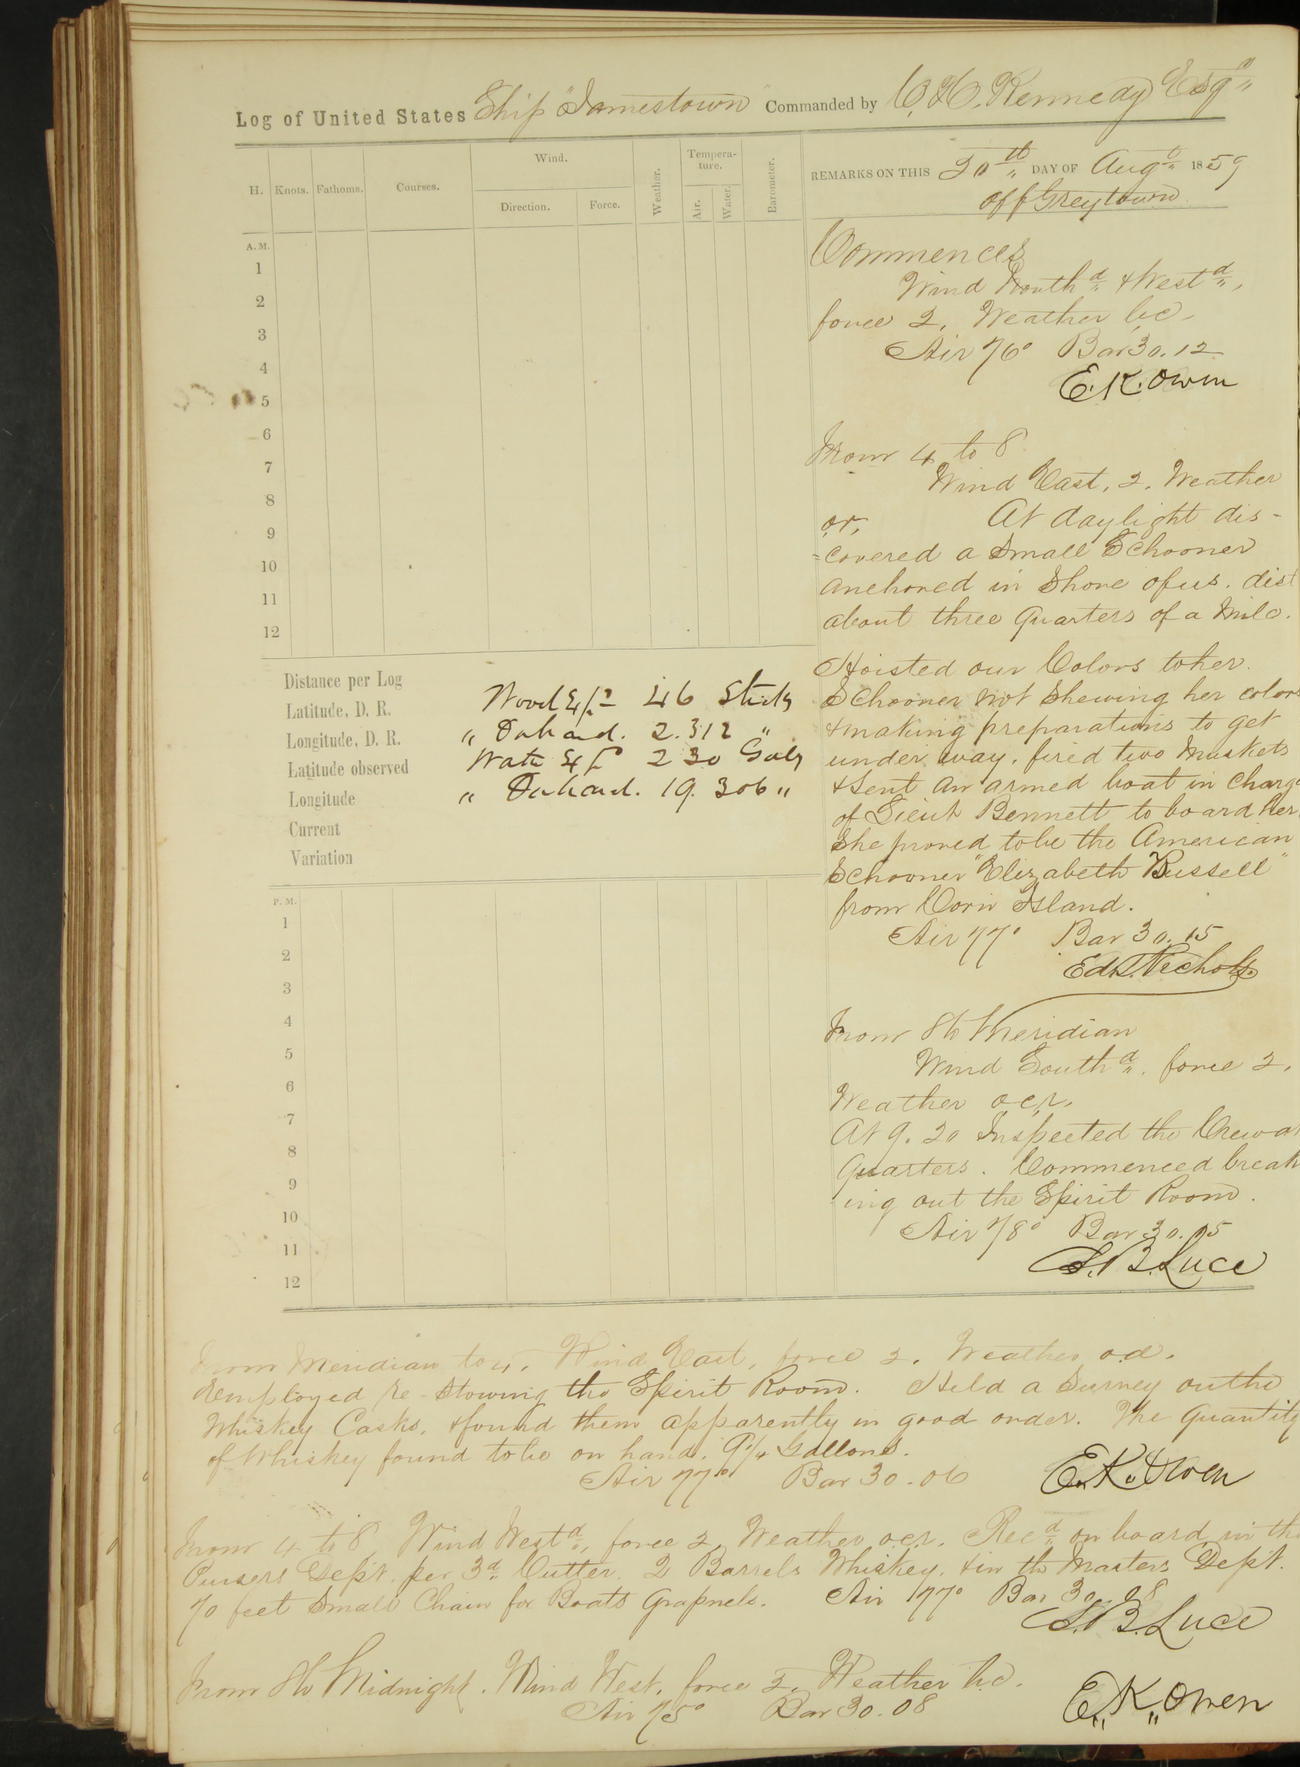 Log of United States Ship "Jamestown" Commanded by C. H. Kennedy Esqr
H. Knots. Fathoms. Courses. Wind. Direction. Force. Weather. Tempera-ture. Air. Water. Barometer.
REMARKS ON THIS 20th DAY OF Augt 1859
off Greytown
A. M.
1
2
3
4
5
6
7
8
9
10
11
12
Commences
Wind Northd & Westd,
force 2, Weather bc.
Air 76° Bar 30.12
E. K. Owen
From 4 to 8
Wind East, 2, Weather
or, At daylight dis-
=covered a Small Schooner
anchored in Shore of us. dist
about three quarters of a Mile.
Hoisted our Colors to her.
Schooner not Shewing her colors
& making preparations to get
under way, fired two Muskets
& Sent an armed boat in Charge
of Lieut Bennett to board her
She proved to be the American
Schooner "Elizabeth Russell"
from Corn Island.
Air 77° Bar 30.15
Ed. T. Nichols
From 8 to Meridian
Wind Southd, force 2,
Weather ocr.
At 9.20 Inspected the Crew at
Quarters. Commenced break
ing out the Spirit Room.
Air 78° Bar 30.15
S. B. Luce
Distance per Log
Latitude, D. R.
Longitude, D. R.
Latitude observed
Longitude
Current
Variation
Wood Exp 46 Sticks
" On hand. 2.312 "
Water Exp 230 Galls
" On hand. 19.306 "
P. M.
1
2
3
4
5
6
7
8
9
10
11
12
From Meridian to 4, Wind East, force 2. Weather od.
Employed re-Stowing the Spirit Room. Held a Survey on the
Whiskey Casks, & found them apparently in good order. The quantity
of Whiskey found to be on hand, 9¼ Gallons.
Air 77° Bar 30.06 E. K. Owen
From 4 to 8, Wind Westd, force 2, Weather ocr. Recd on board in the
Pursers Dept. per 3d Cutter. 2 Barrels Whiskey, & in the Masters Dept.
70 feet Small Chain for Boats grapnels. Air 77° Bar 30.08
S. B. Luce
From 8 to Midnight. Wind West, force 2, Weather bc.
Air 75° Bar 30.08 E. K. Owen